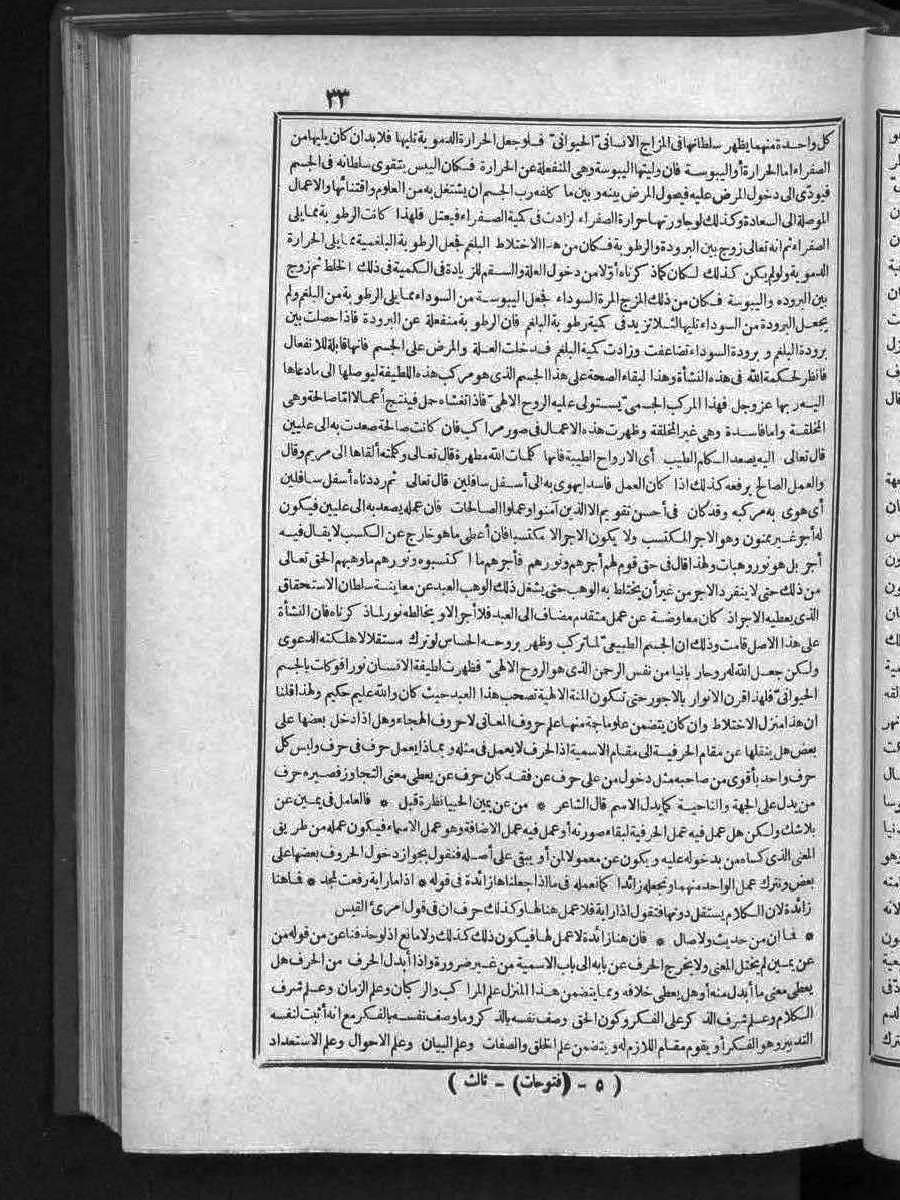 ٣٣
كل واحدة منهما يظهر سلطانها فى المزاج الانسانى الحيوانى فلو جعل الحرارة الدموية تليها فلا بد ان كان يليها من
الصفراء اما الحرارة أو اليبوسة فان وليتها اليبوسة وهى المنفعلة عن الحرارة فكان اليبس يتقوى سلطانه فى الجسم
فيؤدى الى دخول المرض عليه فيحول المرض بينه وبين ما كلفه رب الجسم ان يشتغل به من العلوم واقتنائها والاعمال
الموصلة الى السعادة وكذلك لو جاورتها حرارة الصفراء لزادت فى كمية الصفراء فيعتل فلهذا كانت الرطوبة مما يلى
الصفراء ثم انه تعالى زوج بين البرودة والرطوبة فكان من هذا الاختلاط البلغم فجعل الرطوبة البلغمية مما يلى الحرارة
الدموية ولو لم يكن كذلك لكان كما ذكرناه أولا من دخول العلة والسقم للزيادة فى الكمية فى ذلك الخلط ثم زوج
بين البروده واليبوسة فكان من ذلك المزج المرة السوداء فجعل اليبوسة من السوداء مما يلى الرطوبة من البلغم ولم
يجعل البرودة من السوداء تليها لئلا تزيد فى كمية رطوبة البلغم فان الرطوبة منفعلة عن البرودة فاذا حصلت بين
برودة البلغم وبرودة السوداء تضاعفت وزادت كمية البلغم فدخلت العلة والمرض على الجسم فانها قابلة للانفعال
فانظر لحكمة الله فى هذه النشأة وهذا لبقاء الصحة على هذا الجسم الذى هو مركب هذه اللطيفة ليوصلها الى ما دعاها
اليه ربها عز وجل فهذا المركب الجسمى يستولى عليه الروح الالهى فاذا تغشاه حمل فينتج أعمالا اما صالحة وهى
المخلقة واما فاسدة وهى غير المخلقة وظهرت هذه الاعمال فى صور مراكب فان كانت صالحة صعدت به الى عليين
قال تعالى اليه يصعد الكلم الطيب أى الارواح الطيبة فانها كلمات الله مطهرة قال تعالى وكلمته ألقاها الى مريم وقال
والعمل الصالح يرفعه كذلك اذا كان العمل فاسدا يهوى به الى أسفل سافلين قال تعالى ثم رددناه أسفل سافلين
أى هوى به مركبه وقد كان فى أحسن تقويم الا الذين آمنوا وعملوا الصالحات فان عمله يصعد به الى عليين فيكون
له أجر غير ممنون وهو الاجر المكتسب ولا يكون الاجر الا مكتسبا فان أعطى ما هو خارج عن الكسب لا يقال فيه
أجر بل هو نور وهبات ولهذا قال فى حق قوم لهم أجرهم ونورهم فأجرهم ما اكتسبوه ونورهم ما وهبهم الحق تعالى
من ذلك حتى لا ينفرد الاجر من غير أن يختلط به الوهب حتى يشغل ذلك الوهب العبد عن معاينة سلطان الاستحقاق
الذى يعطيه الاجر اذ كان معاوضة عن عمل متقدم مضاف الى العبد فلا أجر الا و يخالطه نور لما ذكرناه فان النشأة
على هذا الاصل قامت وذلك ان الجسم الطبيعى لما تركب وظهر بروحه الحساس لو ترك مستقلا لاهلكته الدعوى
ولكن جعل الله له روحا ربانيا من نفس الرحمن الذى هو الروح الالهى فظهرت لطيفة الانسان نورا فوكات بالجسم
الحيوانى فلهذا قرن الانوار بالاجور حتى تكون المنة الالهية تصحب هذا العبد حيث كان والله عليم حكيم ولهذا قلنا
ان هذا منزل الاختلاط وان كان يتضمن علوما جة منها علم حروف المعانى لا حروف الهجاء وهل اذا دخل بعضها على
بعض هل ينقلها عن مقام الحرفية الى مقام الاسمية اذ الحرف لا يعمل فى مثله وبماذا يعمل حرف فى حرف وليس كل
حرف واحد بأقوى من صاحبه مثل دخول من على حرف عن فقد كان حرف عن يعطى معنى التجاوز فصيره حرف
من يدل على الجهة والناحية كما يدل الاسم قال الشاعر * من عن يمين الحبيا نظرة قبل * فالعامل فى يمين عن
بلا شك ولكن هل عمل فيه عمل الحرفية لبقاء صورته أو عمل فيه عمل الاضافة وهو عمل الاسماء فيكون عمله من طريق
المعنى الذى كساه من بدخوله عليه ويكون عن معمولا لمن أو يبقى على أصله فنقول بجواز دخول الحروف بعضها على
بعض ونترك عمل الواحد منهما ونجعله زائدا كما نعمله فى ما اذا جعلناها زائدة فى قوله * اذا ما راية رفعت لمجد * فما هنا
زائدة لان الكلام يستقل دونها فتقول اذا راية فلا عمل هنا لها وكذلك حرف ان فى قول امرئ القيس
* فما ان من حديث ولا صال * فان هنا زائدة لا عمل لها فيكون ذلك كذلك ولا مانع اذ لو حذفنا عن من قوله من
عن يمين لم يختل المعنى ولا يخرج الحرف عن بابه الى باب الاسمية من غير ضرورة واذا أبدل الحرف من الحرف هل
يعطى معنى ما أبدل منه أو هل يعطى خلافه ومما يتضمن هذا المنزل علم المراكب والركبان وعلم الزمان وعلم شرف
الكلام وعلم شرف الذكر على الفكر وكون الحق وصف نفسه بالذكر وما وصف نفسه بالفكر مع انه أثبت لنفسه
التدبير وهو الفكر أو يقوم مقام اللازم له ويتضمن علم الخلق والصفات وعلم البيان وعلم الاحوال وعلم الاستعداد
( ٥ - (فتوحات) - ثالث )